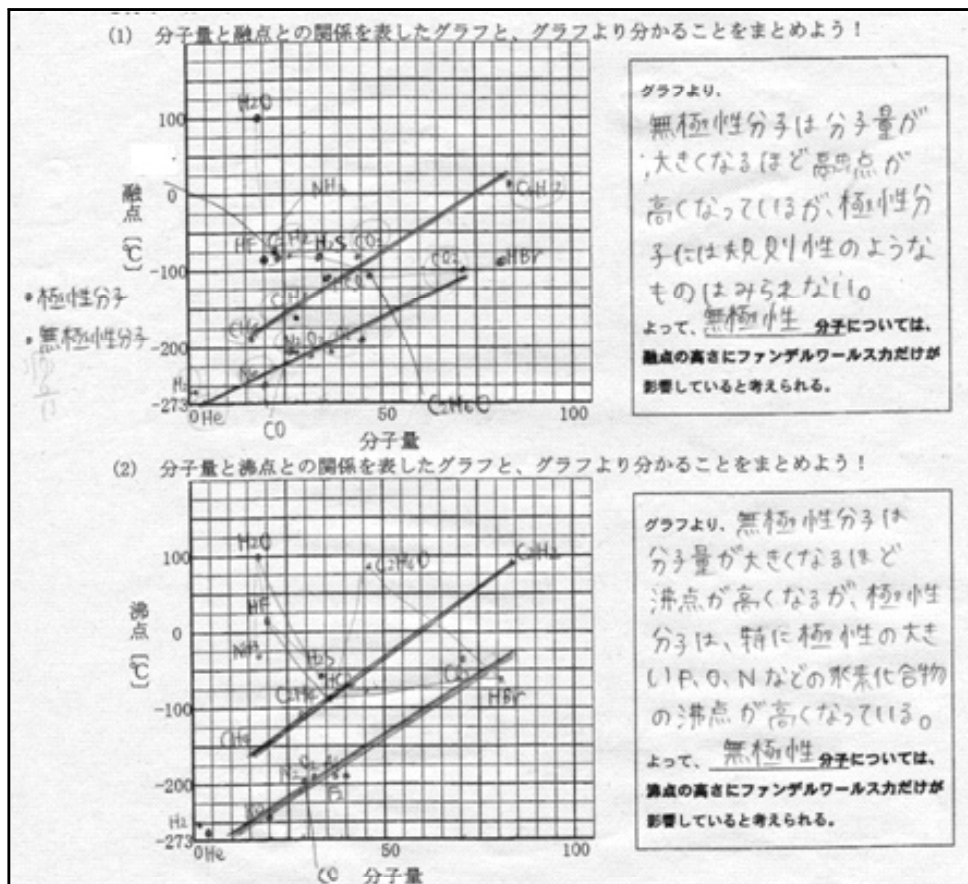 (1) 分子量と融点との関係を表したグラフと、グラフより分かることをまとめよう！
100
0
-100
-200
-273
融点〔℃〕
H2O
NH3
HF
C2H2
H2S
CO2
C6H12
HBr
CH4
N2
O2
Ne
H2
He
CO
C2H6O
0
50
100
分子量
・極性分子
・無極性分子
グラフより、
無極性分子は分子量が
大きくなるほど融点が
高くなっているが、極性分
子には規則性のような
ものはみられない。
よって、無極性分子については、
融点の高さにファンデルワールス力だけが
影響していると考えられる。
(2) 分子量と沸点との関係を表したグラフと、グラフより分かることをまとめよう！
100
0
-100
-200
-273
沸点〔℃〕
H2O
C2H6O
HF
NH3
H2S
C2H6
HBr
CH4
N2
O2
F2
H2
He
CO
0
50
100
分子量
グラフより、無極性分子は
分子量が大きくなるほど
沸点が高くなるが、極性
分子は、特に極性の大き
いF、O、Nなどの水素化合物
の沸点が高くなっている。
よって、無極性分子については、
沸点の高さにファンデルワールス力だけが
影響していると考えられる。